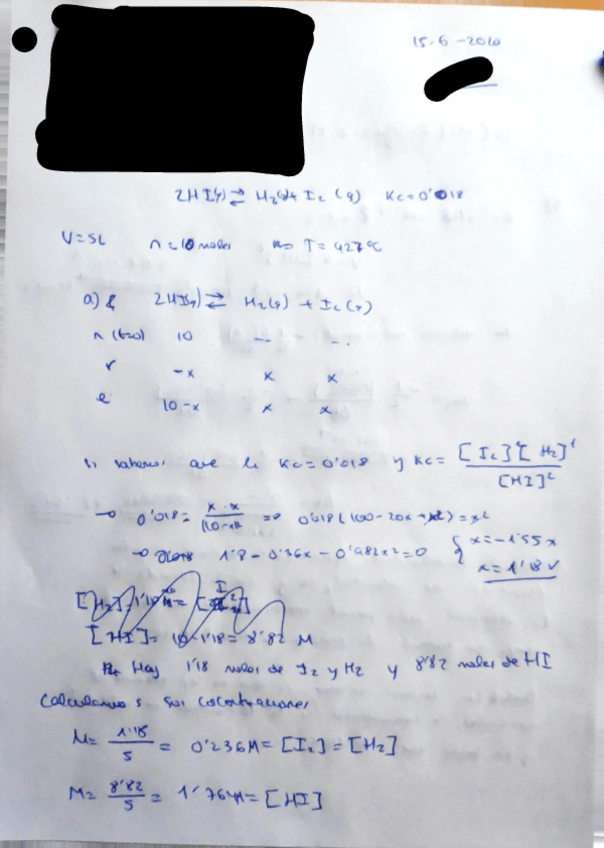 15-6-2020
2HI(g) ⇄ H2(g) + I2 (g) Kc=0'018
V=5L n=10 moles T=427ºC
a) 2HI(g) ⇄ H2(g) + I2(g)
n (t=0) 10 — —
r -x x x
e 10-x x x
Si sabemos que la Kc=0'018 y Kc= [I2]¹[H2]¹ / [HI]²
→ 0'018 = x·x / (10-x)² => 0'018(100-20x+x²)=x²
→ 1'8-0'36x-0'982x²=0 { x=-1'55 x
x=1'18 ✓
[HI]= 10-1'18= 8'82 M
Hay 1'18 moles de I2 y H2 y 8'82 moles de HI
Calculamos sus concentraciones
M= 1'18 / 5 = 0'236M=[I2]=[H2]
M= 8'82 / 5 = 1'764M=[HI]